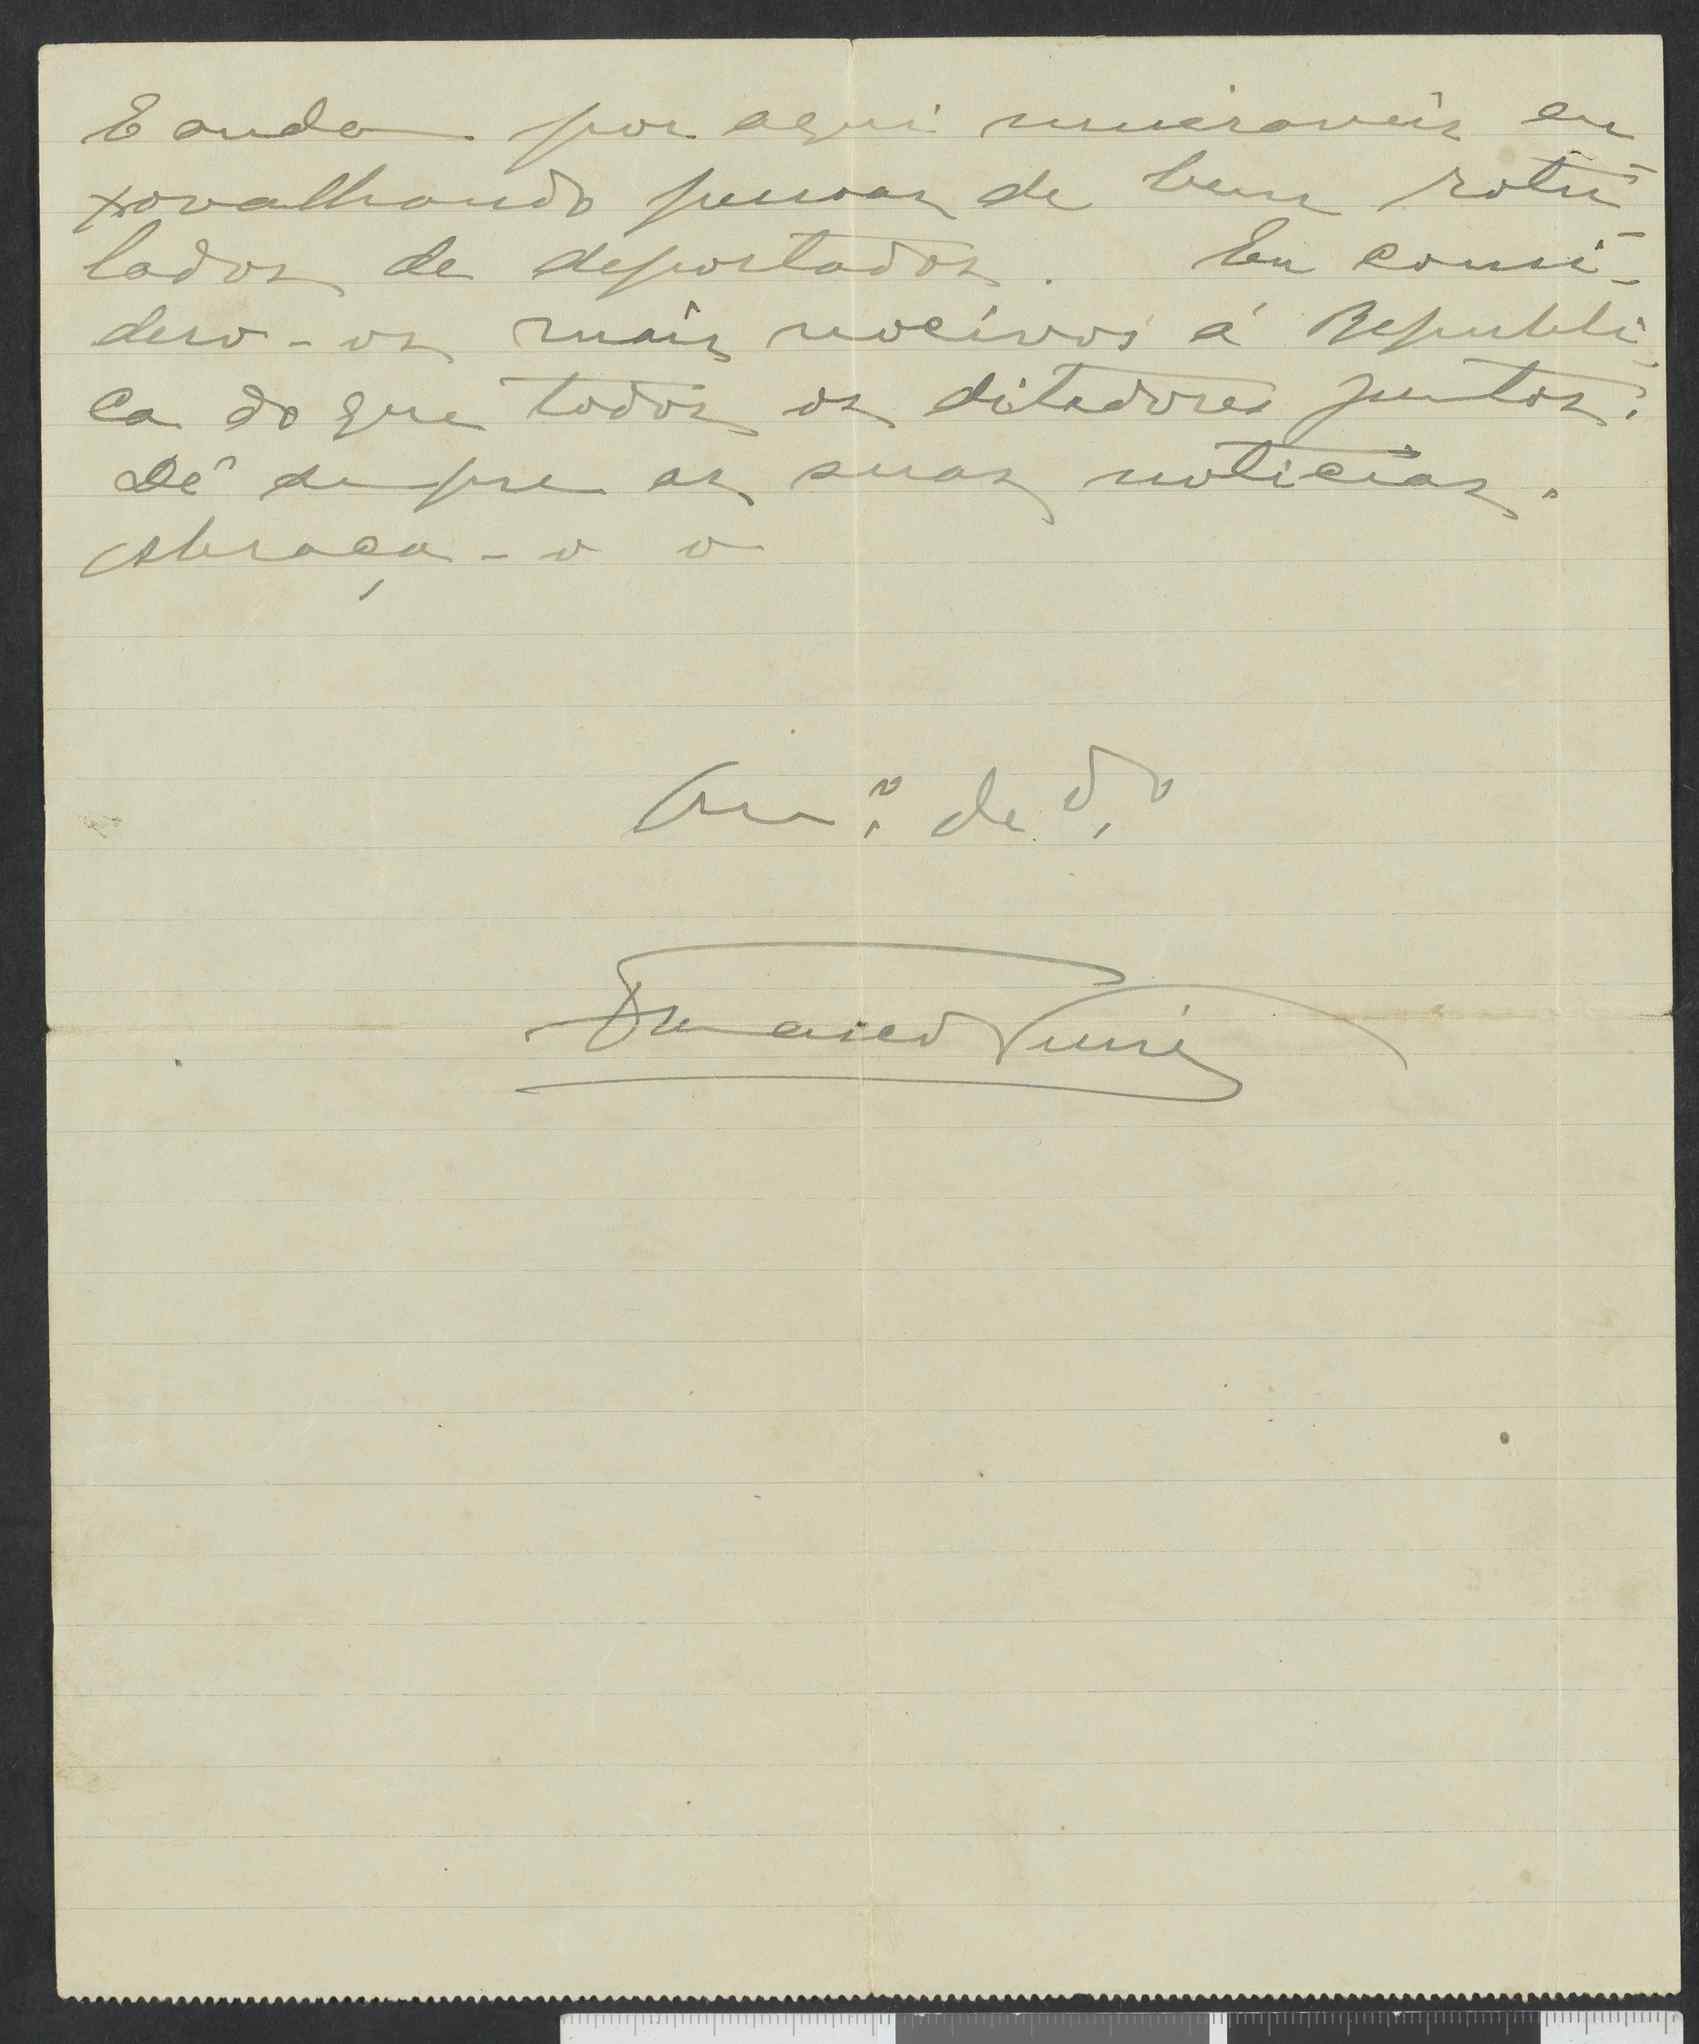 E anda por aqui miseraveis en
xovalhando pessoas de bem rotu-
lados de deportados. Eu consi-
dero-os mais nocivos á Republi-
ca do que todos os ditadores juntos.
Dê sempre as suas noticias.
Abraça-o o
Am.º de